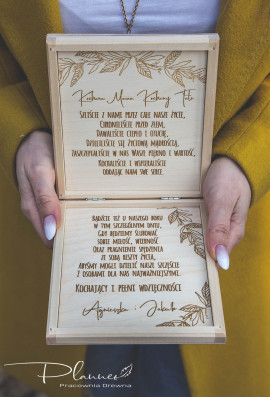 Kochana Mamo, Kochany Tato
Szliście z nami przez całe nasze życie,
Chroniliście przed złem,
Dawaliście ciepło i otuchę,
Dzieliliście się życiową mądrością,
Zaszczepialiście w nas Wasze piękno i wartość,
Kochaliście i wspieraliście
oddając nam swe serce.
Bądźcie też u naszego boku
w tym szczególnym dniu,
Gdy będziemy ślubować
sobie miłość, wierność
Oraz pragnienie spędzenia
ze sobą reszty życia,
Abyśmy mogli dzielić nasze szczęście
z osobami dla nas najważniejszymi.
Kochający i pełni wdzięczności
Agnieszka i Jakub
Planner
Pracownia Drewna